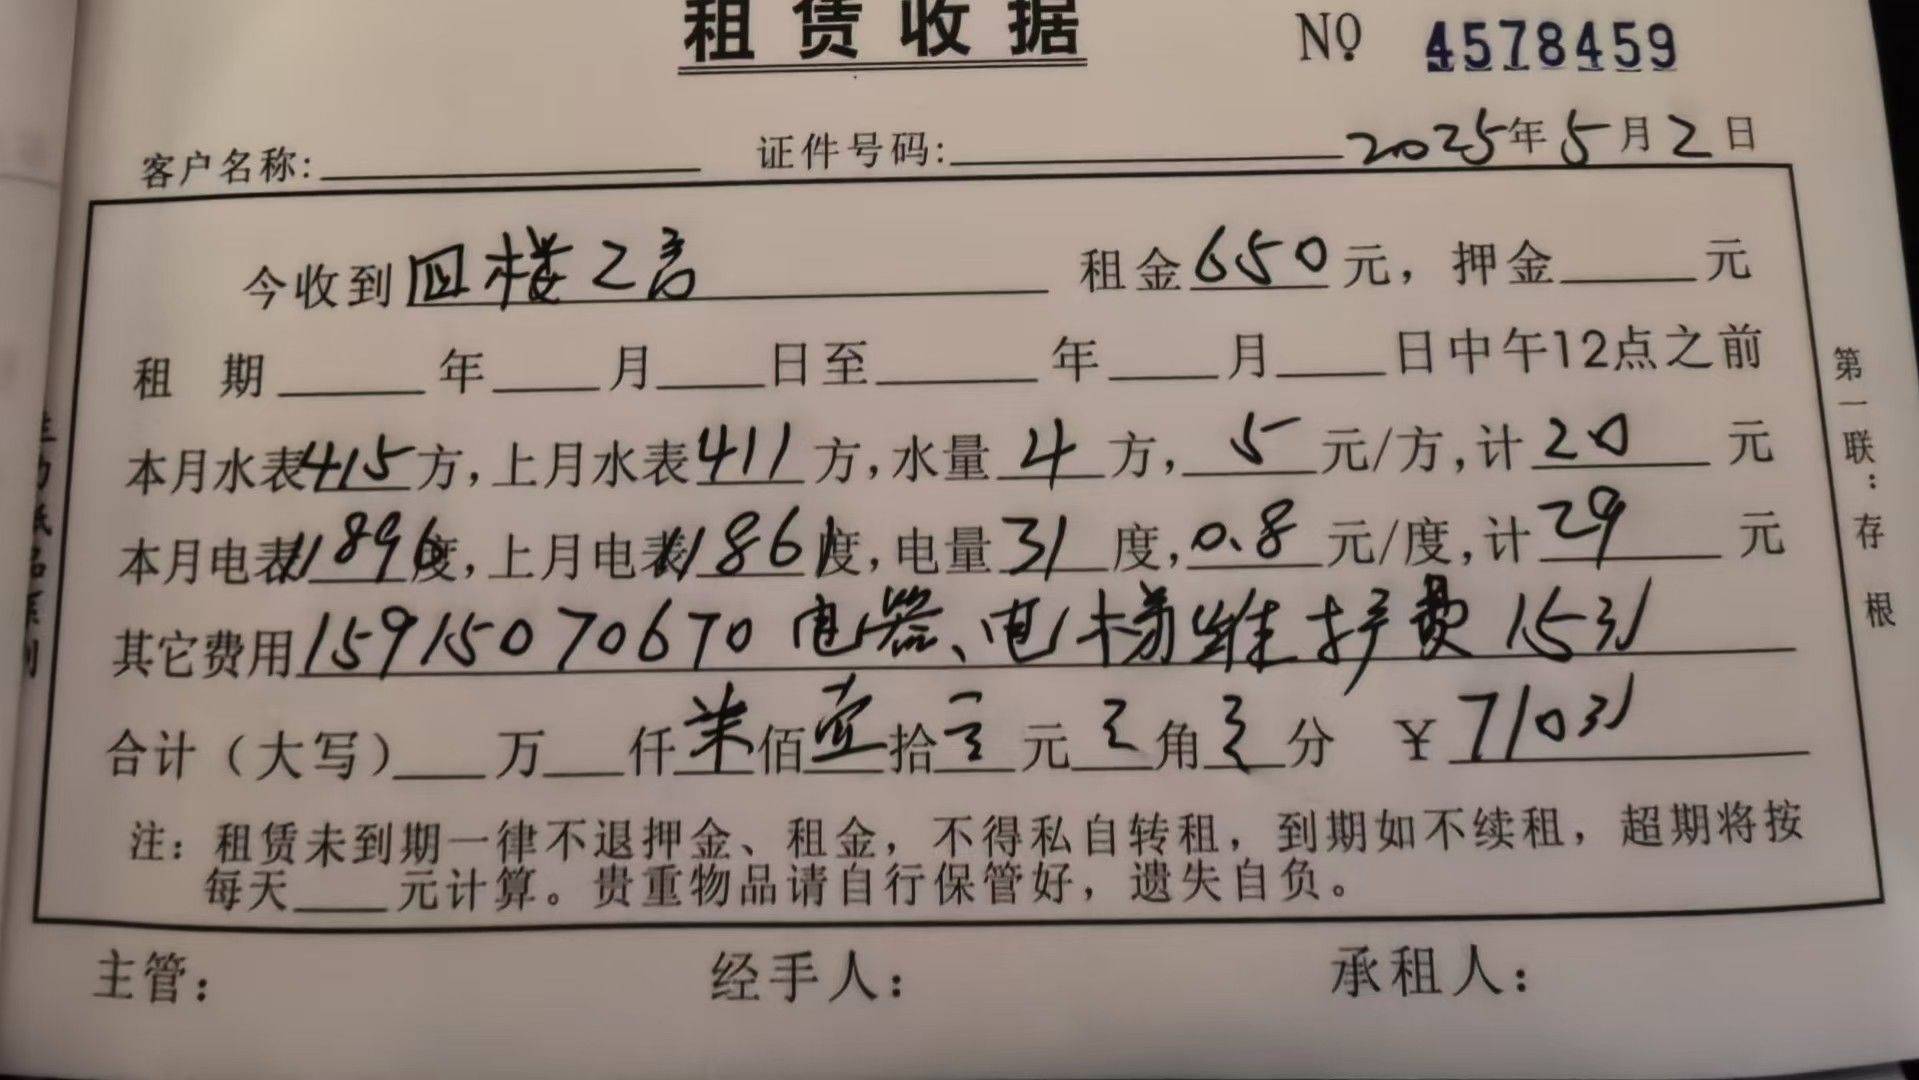 租赁收据 NO. 4578459
客户名称: 证件号码: 2025年5月2日
今收到四楼2号 租金650元，押金 元
租 期 年 月 日至 年 月 日中午12点之前
本月水表415方,上月水表411方,水量4方,5元/方,计20元
本月电表11896度,上月电表11861度,电量31度,0.8元/度,计29元
其它费用15915070670 电器、电梯维护费 1531
合计（大写） 万 仟柒佰壹拾 元 角 分 ¥71031
注：租赁未到期一律不退押金、租金，不得私自转租，到期如不续租，超期将按
每天 元计算。贵重物品请自行保管好，遗失自负。
主管： 经手人： 承租人：
第一联：存根